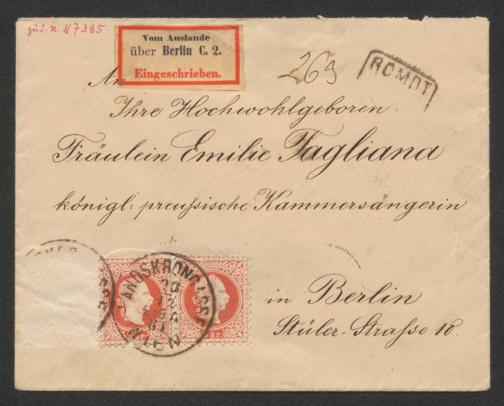 zu J. N. 87385
Vom Auslande
über Berlin C. 2.
Eingeschrieben.
263
ROMDT
An
Ihre Hochwohlgeboren
Fräulein Emilie Tagliana
königl: preussische Kammersängerin
in Berlin
Stüler-Straße 16.
LANDSKRON